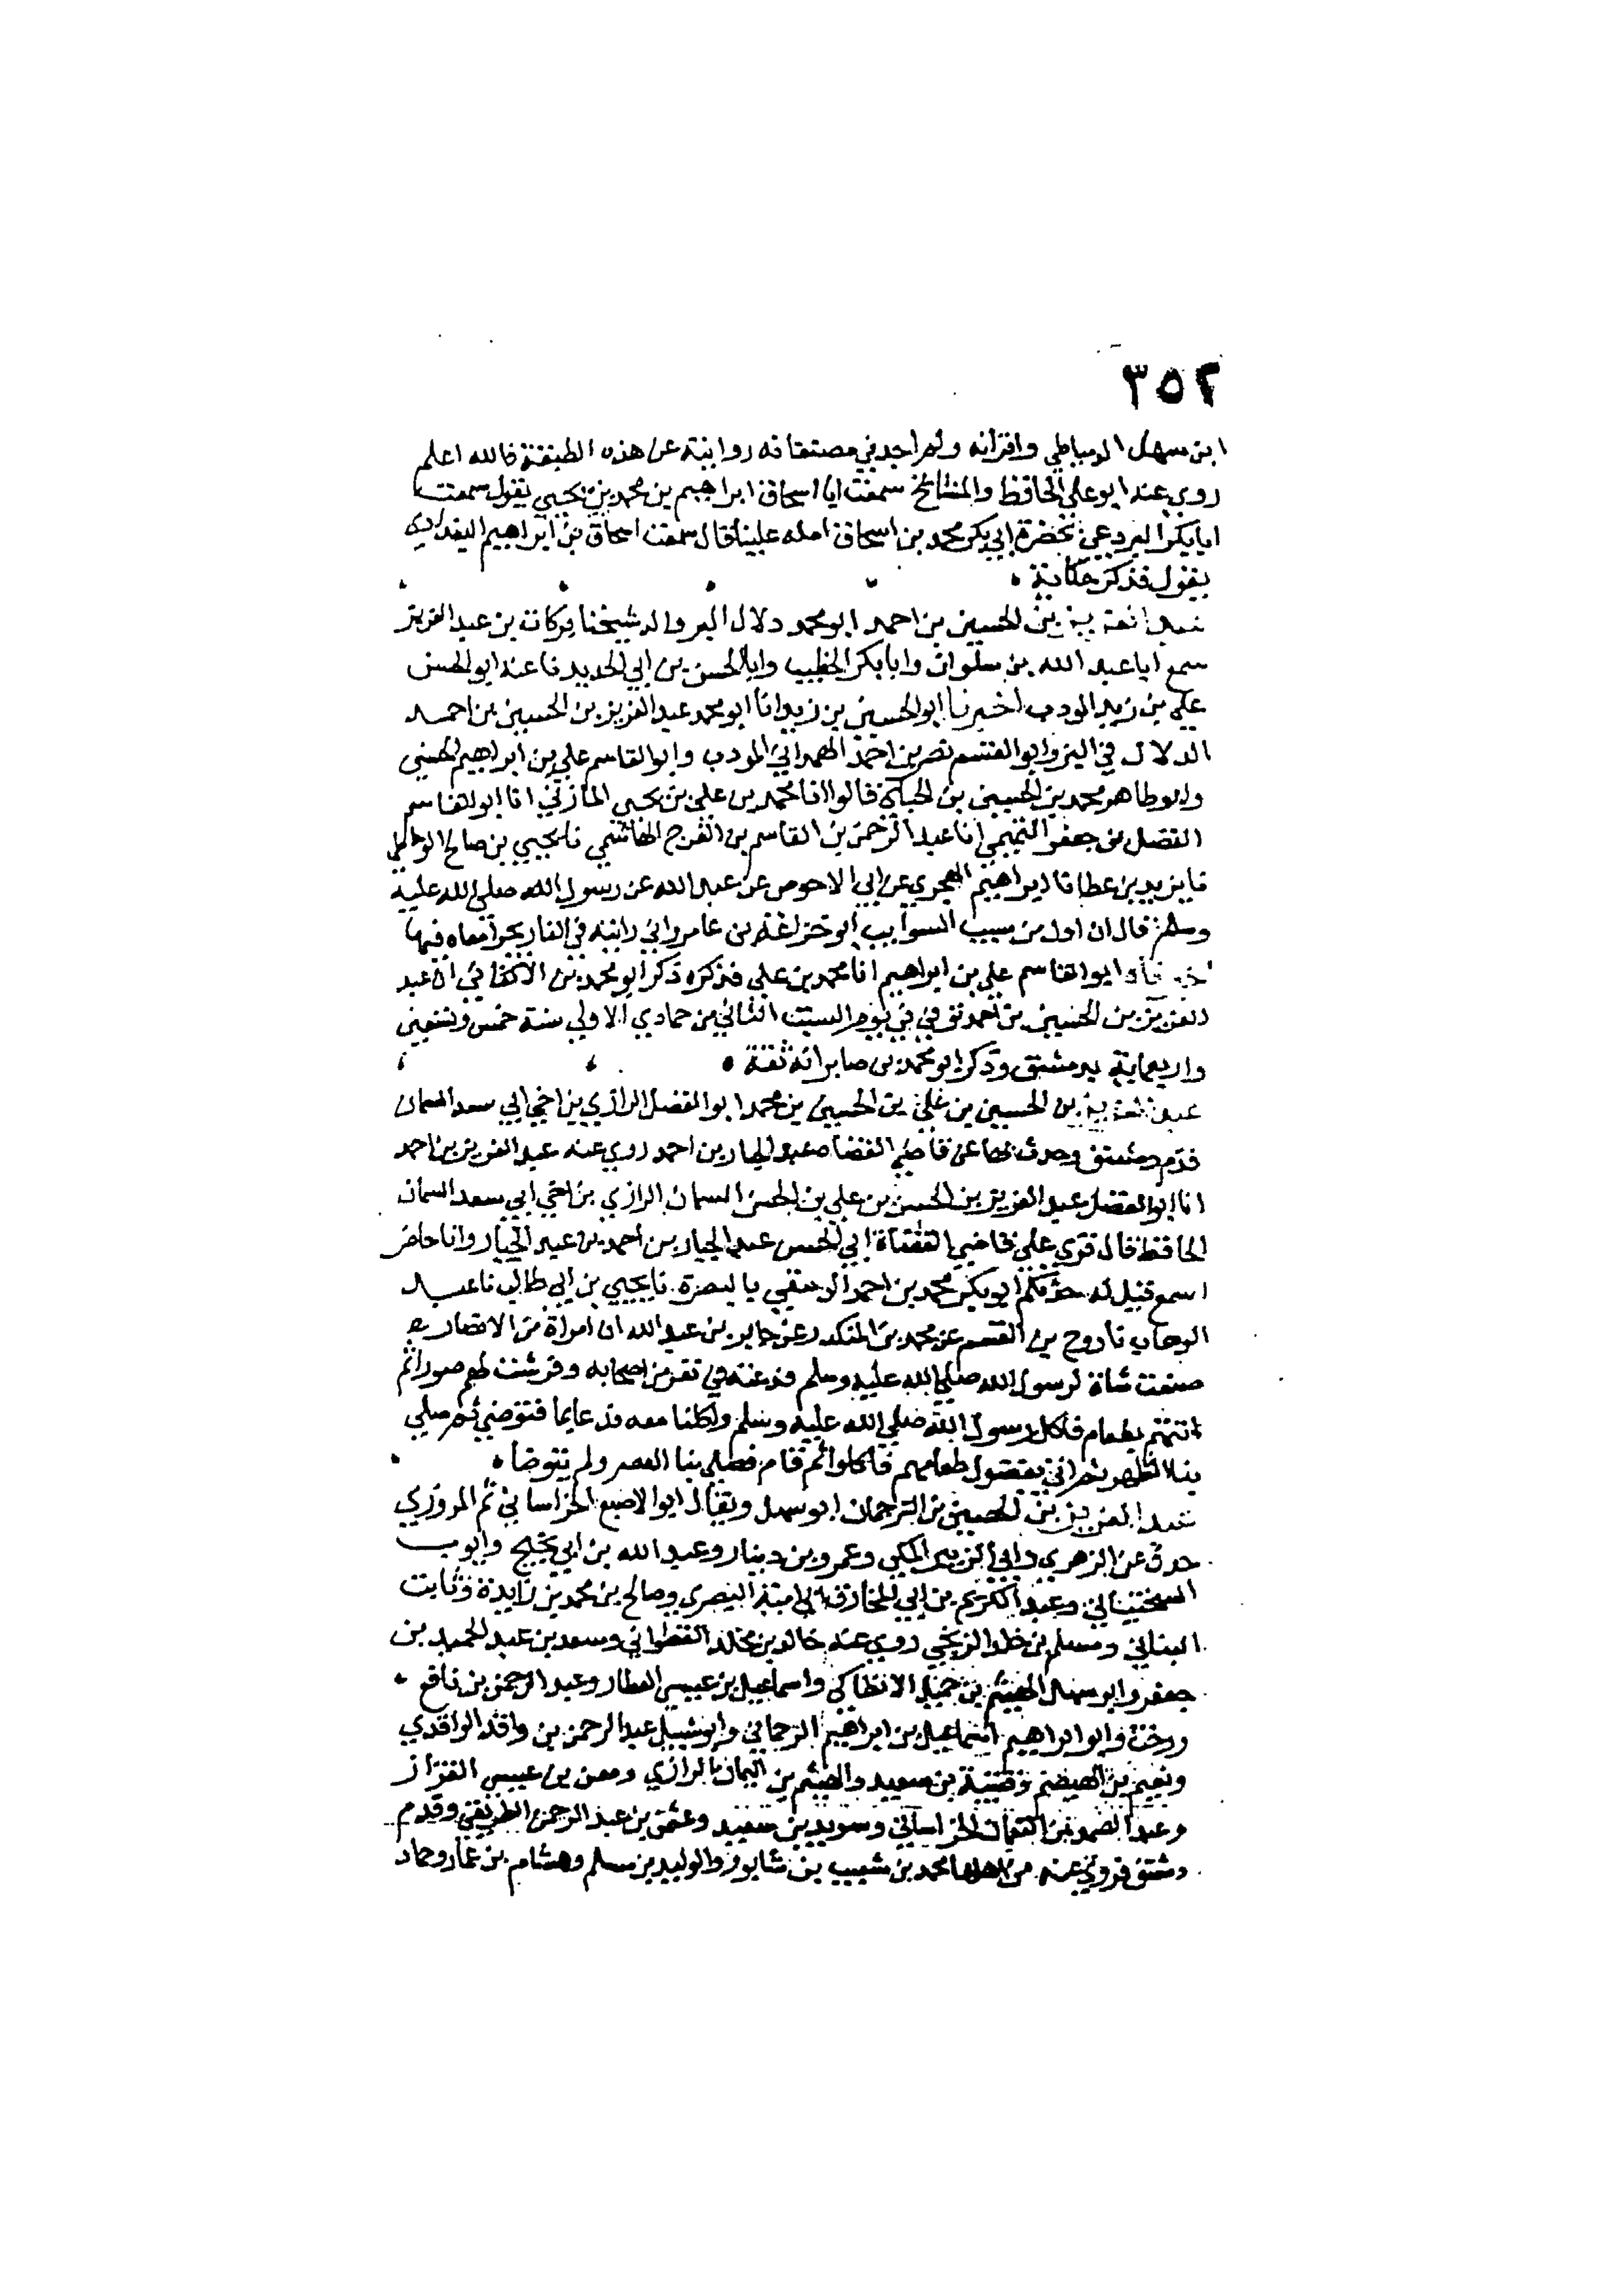 ٣٥٢
ابن سهل الدمياطي واقرانه ولم اجد في مصنفاته روايته عن هذه الطبقة فالله اعلم
روي عنه ابو علي الحافظ والمشائخ سمعت ابا اسحاق ابراهيم بن محمد بن يحيي يقول سمعت
ابا بكر البردعي بحضرة ابي بكر محمد بن اسحاق املاه علينا قال سمعت اسحاق بن ابراهيم البغدادي
يقول فذكر حكاية
عبد العزيز بن الحسين بن احمد ابو محمد دلال البز والد شيخنا بركات بن عبد العزيز
سمع ابا عبد الله بن سلوان وابا بكر الخطيب وابا الحسن بن ابي الحديد نا عنه ابو الحسن
علي بن زيد المودب اخبرنا ابو الحسين بن زيد انا ابو محمد عبد العزيز بن الحسين بن احمد
الدلال في البز وابو القسم نصر بن احمد الهمداني المودب وابو القاسم علي بن ابراهيم الحسيني
وابو طاهر محمد بن الحسين بن الحنائي قالوا انا محمد بن علي بن يحيي المازني انا ابو القاسم
الفضل بن جعفر التميمي انا عبد الرحمن بن القاسم بن الفرج الهاشمي نا يحيي بن صالح الوحاظي
نا يزيد بن عطا نا ابراهيم الهجري عن ابي الاحوص عن عبد الله عن رسول الله صلي الله عليه
وسلم قال ان اول من سيب السوايب ابو خزاعة بن عامر واني رايته في النار يجر امعاه فيها
اخبرنا ابو القاسم علي بن ابراهيم انا محمد بن علي فذكره ذكر ابو محمد بن الاكفاني ان عبد
العزيز بن الحسين بن احمد توفي في يوم السبت الثاني من جمادي الاولي سنة خمس وتسعين
واربعماية بدمشق وذكر ابو محمد بن صابر انه ثقة
عبد العزيز بن الحسين بن علي بن الحسين بن محمد ابو الفضل الرازي بن اخي ابي سعد السمان
قدم دمشق وحدث بها عن قاضي القضاة عبد الجبار بن احمد روي عنه عبد العزيز بن احمد
انا ابو الفضل عبد العزيز بن الحسين بن علي بن الحسن السمان الرازي بن اخي ابي سعد السمان
الحافظ قال قري علي قاضي القضاة ابي الحسن عبد الجبار بن احمد بن عبد الجبار وانا حاضر
اسمع قيل له حدثكم ابو بكر محمد بن احمد بالبصرة نا يحيي بن ابي طالب نا عبد
الوهاب نا روح بن القسم عن محمد بن المنكدر عن جابر بن عبد الله ان امراة من الانصار
صنعت شاة لرسول الله صلي الله عليه وسلم فدعته في نفر من اصحابه وفرشت لهم صورا ثم
اتتهم بطعام فاكل رسول الله صلي الله عليه وسلم واكلنا معه فدعا بما فتوضي ثم صلي
بنا الظهر ثم اتي بفضول طعامهم فاكلوا ثم قام فصلي بنا العصر ولم يتوضا
عبد العزيز بن الحصين بن الترجمان ابو سهل ويقال ابو الاصبع الخراساني ثم المروزي
حدث عن الزهري وابي الزبير المكي وعمرو بن دينار وعبد الله بن ابي نجيح وايوب
السختياني وعبد الكريم بن ابي المخارق ابي امية البصري وصالح بن محمد بن زايدة وثابت
البناني ومسلم بن خالد الزنجي روي عنه خالد بن مخلد القطواني وسعد بن عبد الحميد بن
جعفر وابو سهل الهيثم بن جميل الانطاكي واسماعيل بن عيسي العطار وعبد الرحمن بن نافع
ودرخت وابو ابراهيم اسماعيل بن ابراهيم الترجماني وابو شبيل عبد الرحمن بن واقد الواقدي
ونعيم بن الهيصم وقتيبة بن سعيد والهيثم بن اليمان الرازي ومعن بن عيسي القزاز
وعبد الصمد بن النعمان الخراساني وسويد بن سعيد وعثمن بن عبد الرحمن الطرايفي وقدم
دمشق فروي عنه من اهلها محمد بن شعيب بن شابور والوليد بن مسلم وهشام بن عمار وحماد